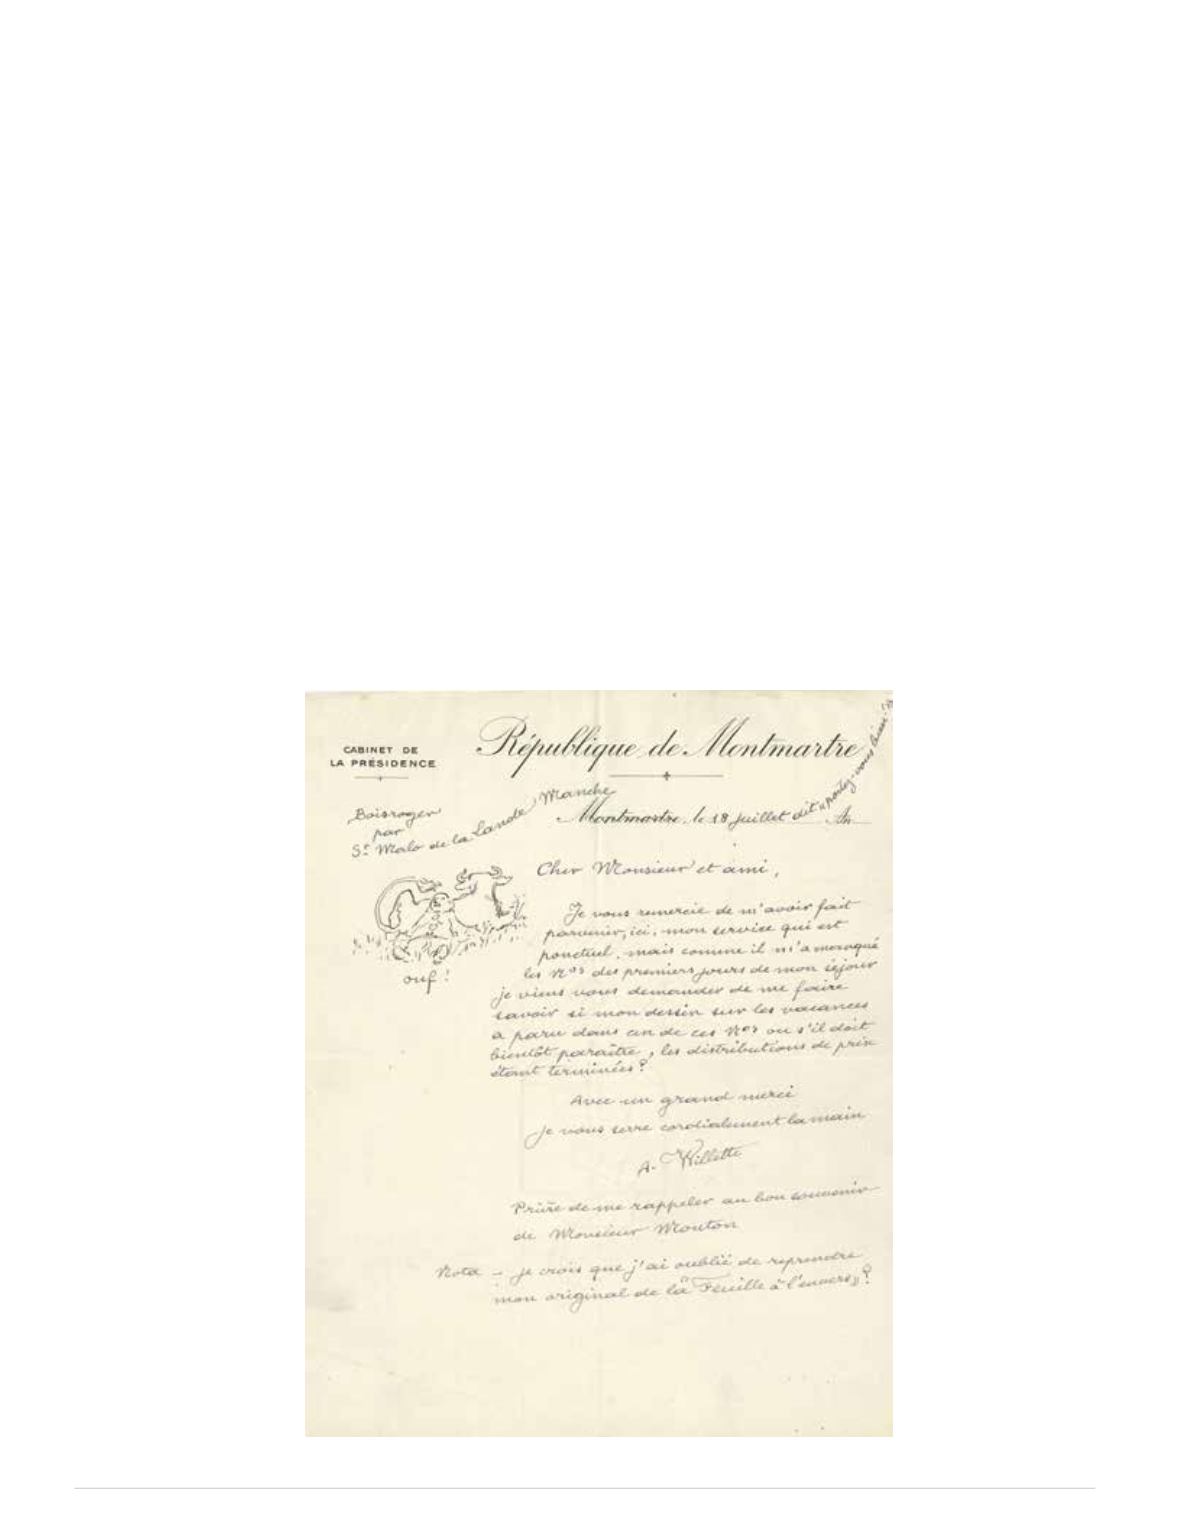 République de Montmartre
CABINET DE
LA PRÉSIDENCE
Boisroger
par
St Malo de la Lande Manche
Montmartre, le 18 juillet dit « portez-vous bien! » An
Cher Monsieur et ami,
Je vous remercie de m'avoir fait
parvenir, ici, mon service qui est
ponctuel, mais comme il m'a manqué
les Nos des premiers jours de mon séjour
je viens vous demander de me faire
savoir si mon dessin sur les vacances
a paru dans un de ces Nos ou s'il doit
bientôt paraître, les distributions de prix
étant terminées?
ouf!
Avec un grand merci
je vous serre cordialement la main
A. Willette
Prière de me rappeler au bon souvenir
de Monsieur Mouton
Nota – je crois que j'ai oublié de reprendre
mon original de la "Feuille à l'envers"?